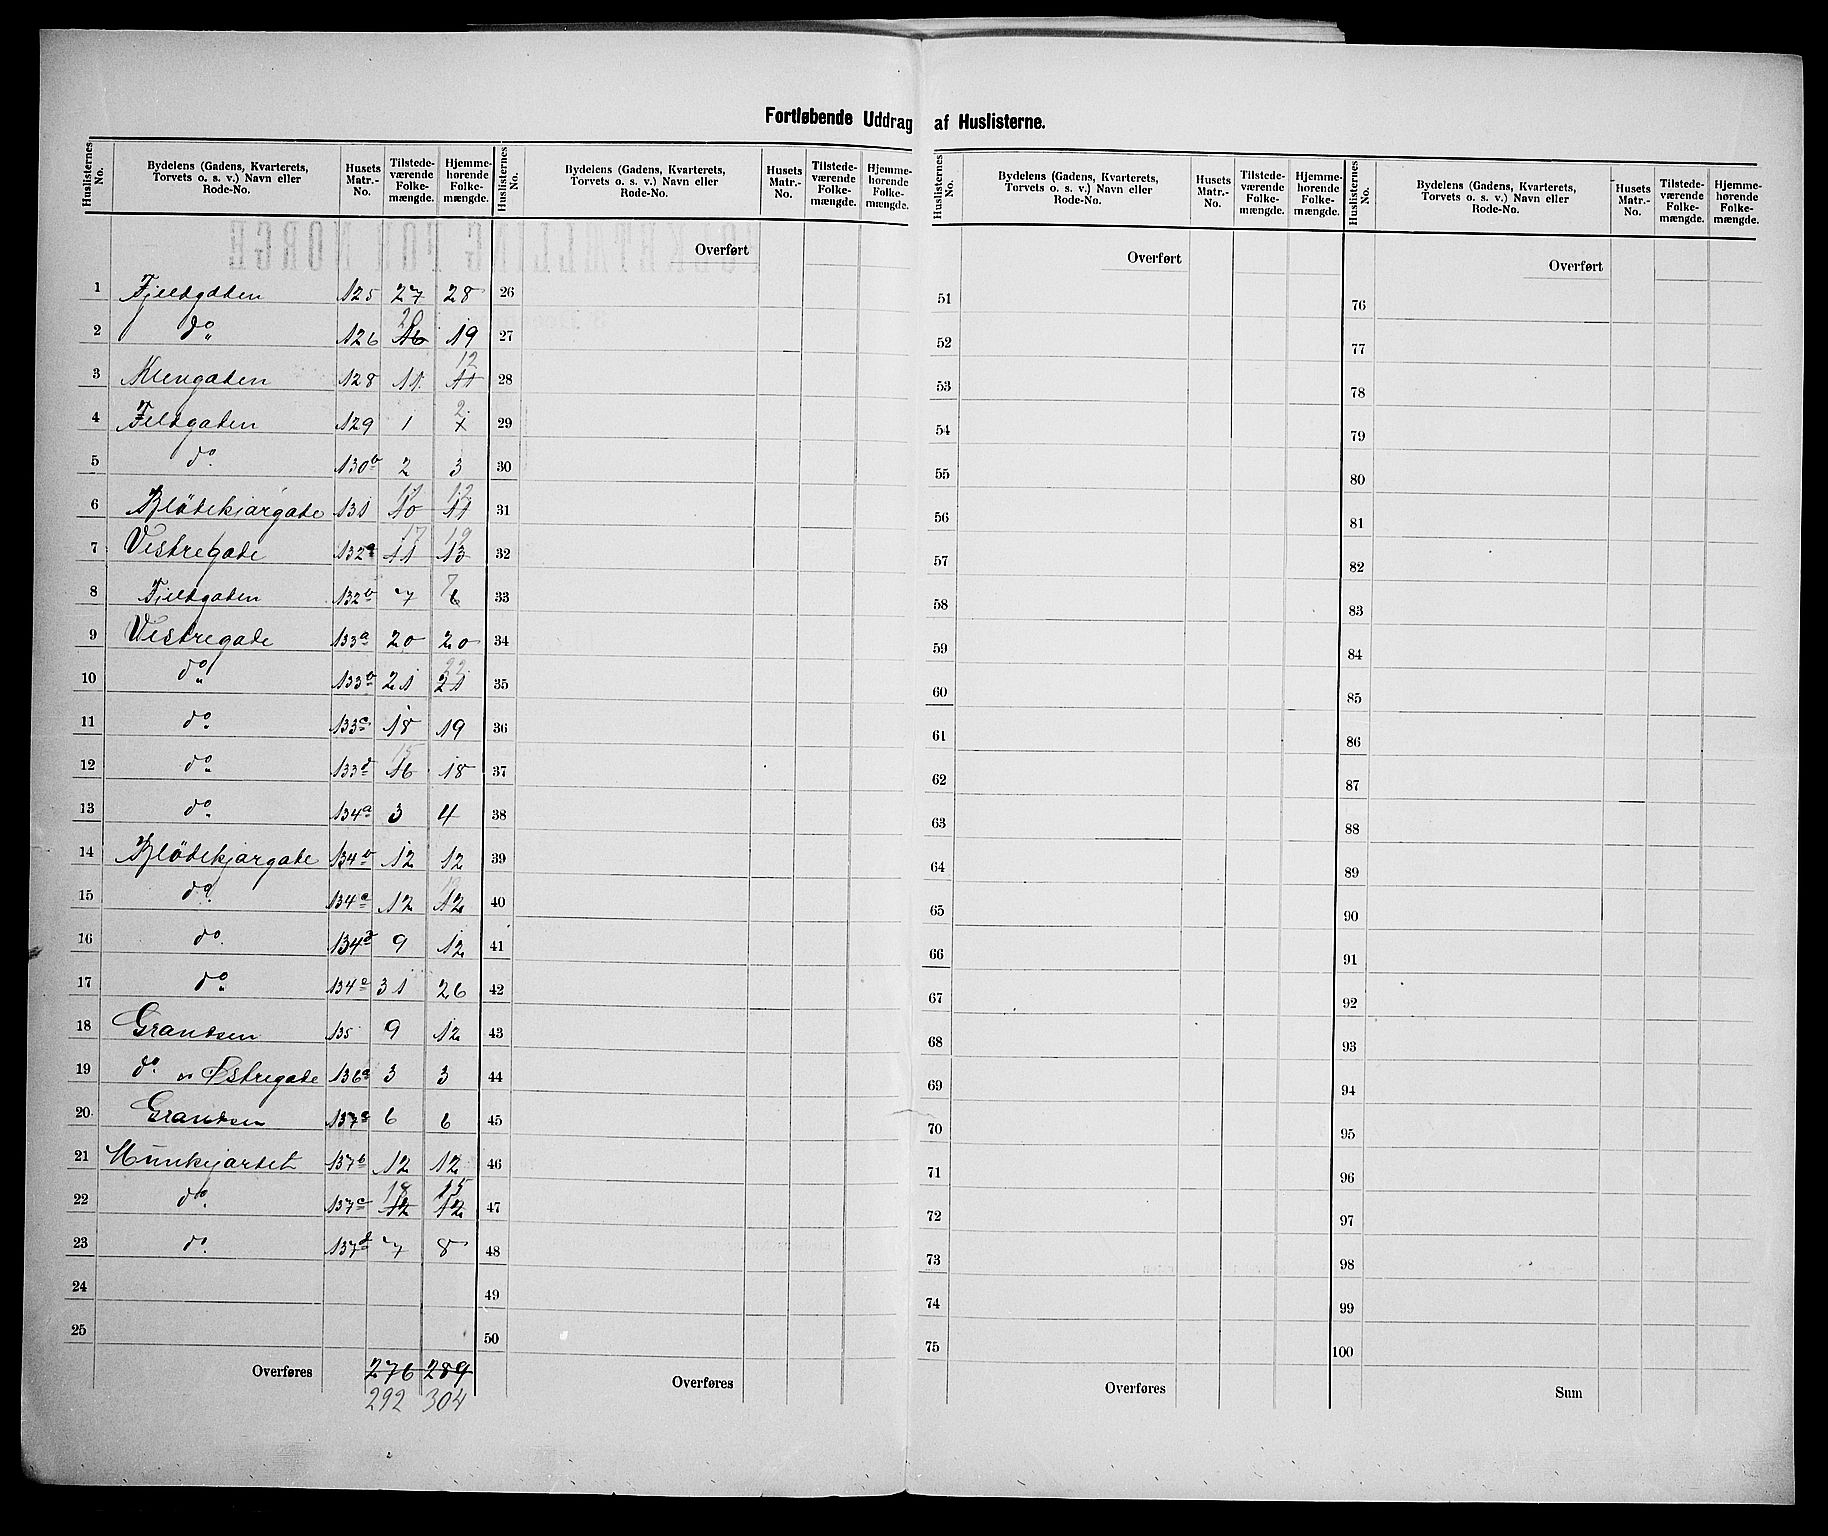 Fortløbende Uddrag af Huslisterne.
Huslisternes No. Bydelens (Gadens, Kvarterets, Torvets o. s. v.) Navn eller Rode-No. Husets Matr.-No. Tilstedeværende Folkemængde. Hjemmehørende Folkemængde.
Huslisternes No. Bydelens (Gadens, Kvarterets, Torvets o. s. v.) Navn eller Rode-No. Husets Matr.-No. Tilstedeværende Folkemængde. Hjemmehørende Folkemængde.
Huslisternes No. Bydelens (Gadens, Kvarterets, Torvets o. s. v.) Navn eller Rode-No. Husets Matr.-No. Tilstedeværende Folkemængde. Hjemmehørende Folkemængde.
Huslisternes No. Bydelens (Gadens, Kvarterets, Torvets o. s. v.) Navn eller Rode-No. Husets Matr.-No. Tilstedeværende Folkemængde. Hjemmehørende Folkemængde.
Overført Overført Overført
1 Fjeldgaden 125 27 28 26 51 76
20
2 do 126 16 19 27 52 77
12
3 Klengaden 128 11 11 28 53 78
2
4 Feldgaden 129 1 29 54 79
5 do. 130b 2 3 30 55 80
12
6 Blödekjargade 131 10 11 31 56 81
17 19
7 Vestregade 132a 11 13 32 57 82
7
8 Fjeldgaden 132b 7 6 33 58 83
9 Vestregade 133a 20 20 34 59 84
22
10 do 133b 21 21 35 60 85
11 do 133c 18 19 36 61 86
15
12 do 133d 16 18 37 62 87
13 do 134a 3 4 38 63 88
14 Blödekjargade 134b 12 12 39 64 89
15 do. 134c 12 12 40 65 90
16 do. 134d 9 12 41 66 91
17 do 134e 31 26 42 67 92
18 Grandsen 135 9 12 43 68 93
19 do. Østregade 136a 3 3 44 69 94
20 Grandsen 137a 6 6 45 70 95
21 Munkejordet 137b 12 12 46 71 96
15
22 do. 137c 12 12 47 72 97
23 do. 137d 7 8 48 73 98
24 49 74 99
25 50 75 100
Overføres 276 289 Overføres Overføres Sum
292 304